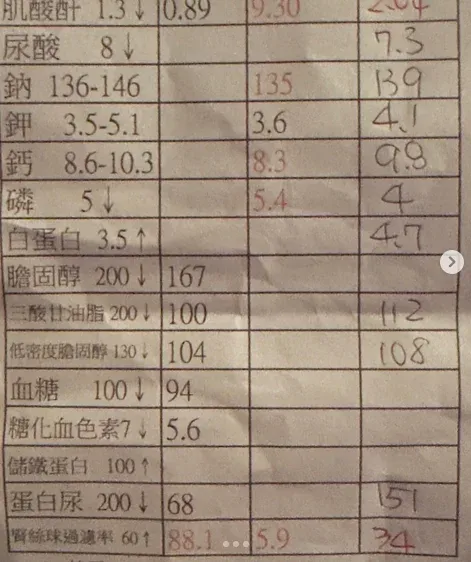 肌酸酐 1.3↓ 0.89 9.30 2.04
尿酸 8↓ 7.3
鈉 136-146 135 139
鉀 3.5-5.1 3.6 4.1
鈣 8.6-10.3 8.3 9.8
磷 5↓ 5.4 4
白蛋白 3.5↑ 4.7
膽固醇 200↓ 167
三酸甘油脂 200↓ 100 112
低密度膽固醇 130↓ 104 108
血糖 100↓ 94
糖化血色素7↓ 5.6
儲鐵蛋白 100↑
蛋白尿 200↓ 68 151
腎絲球過濾率 60↑ 88.1 5.9 34